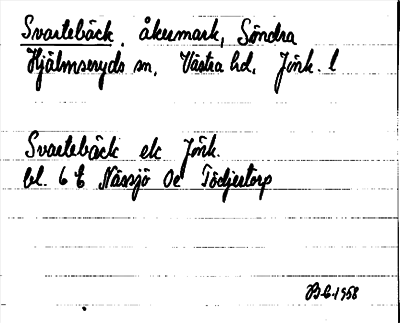 Svartebäck, åkermark, Söndra
Hjälmseryds sn, Västra hd, Jönk. l
Svartebäck ek Jönk.
bl. 6 E Nässjö Oe Tödjertorp
B-E-1958